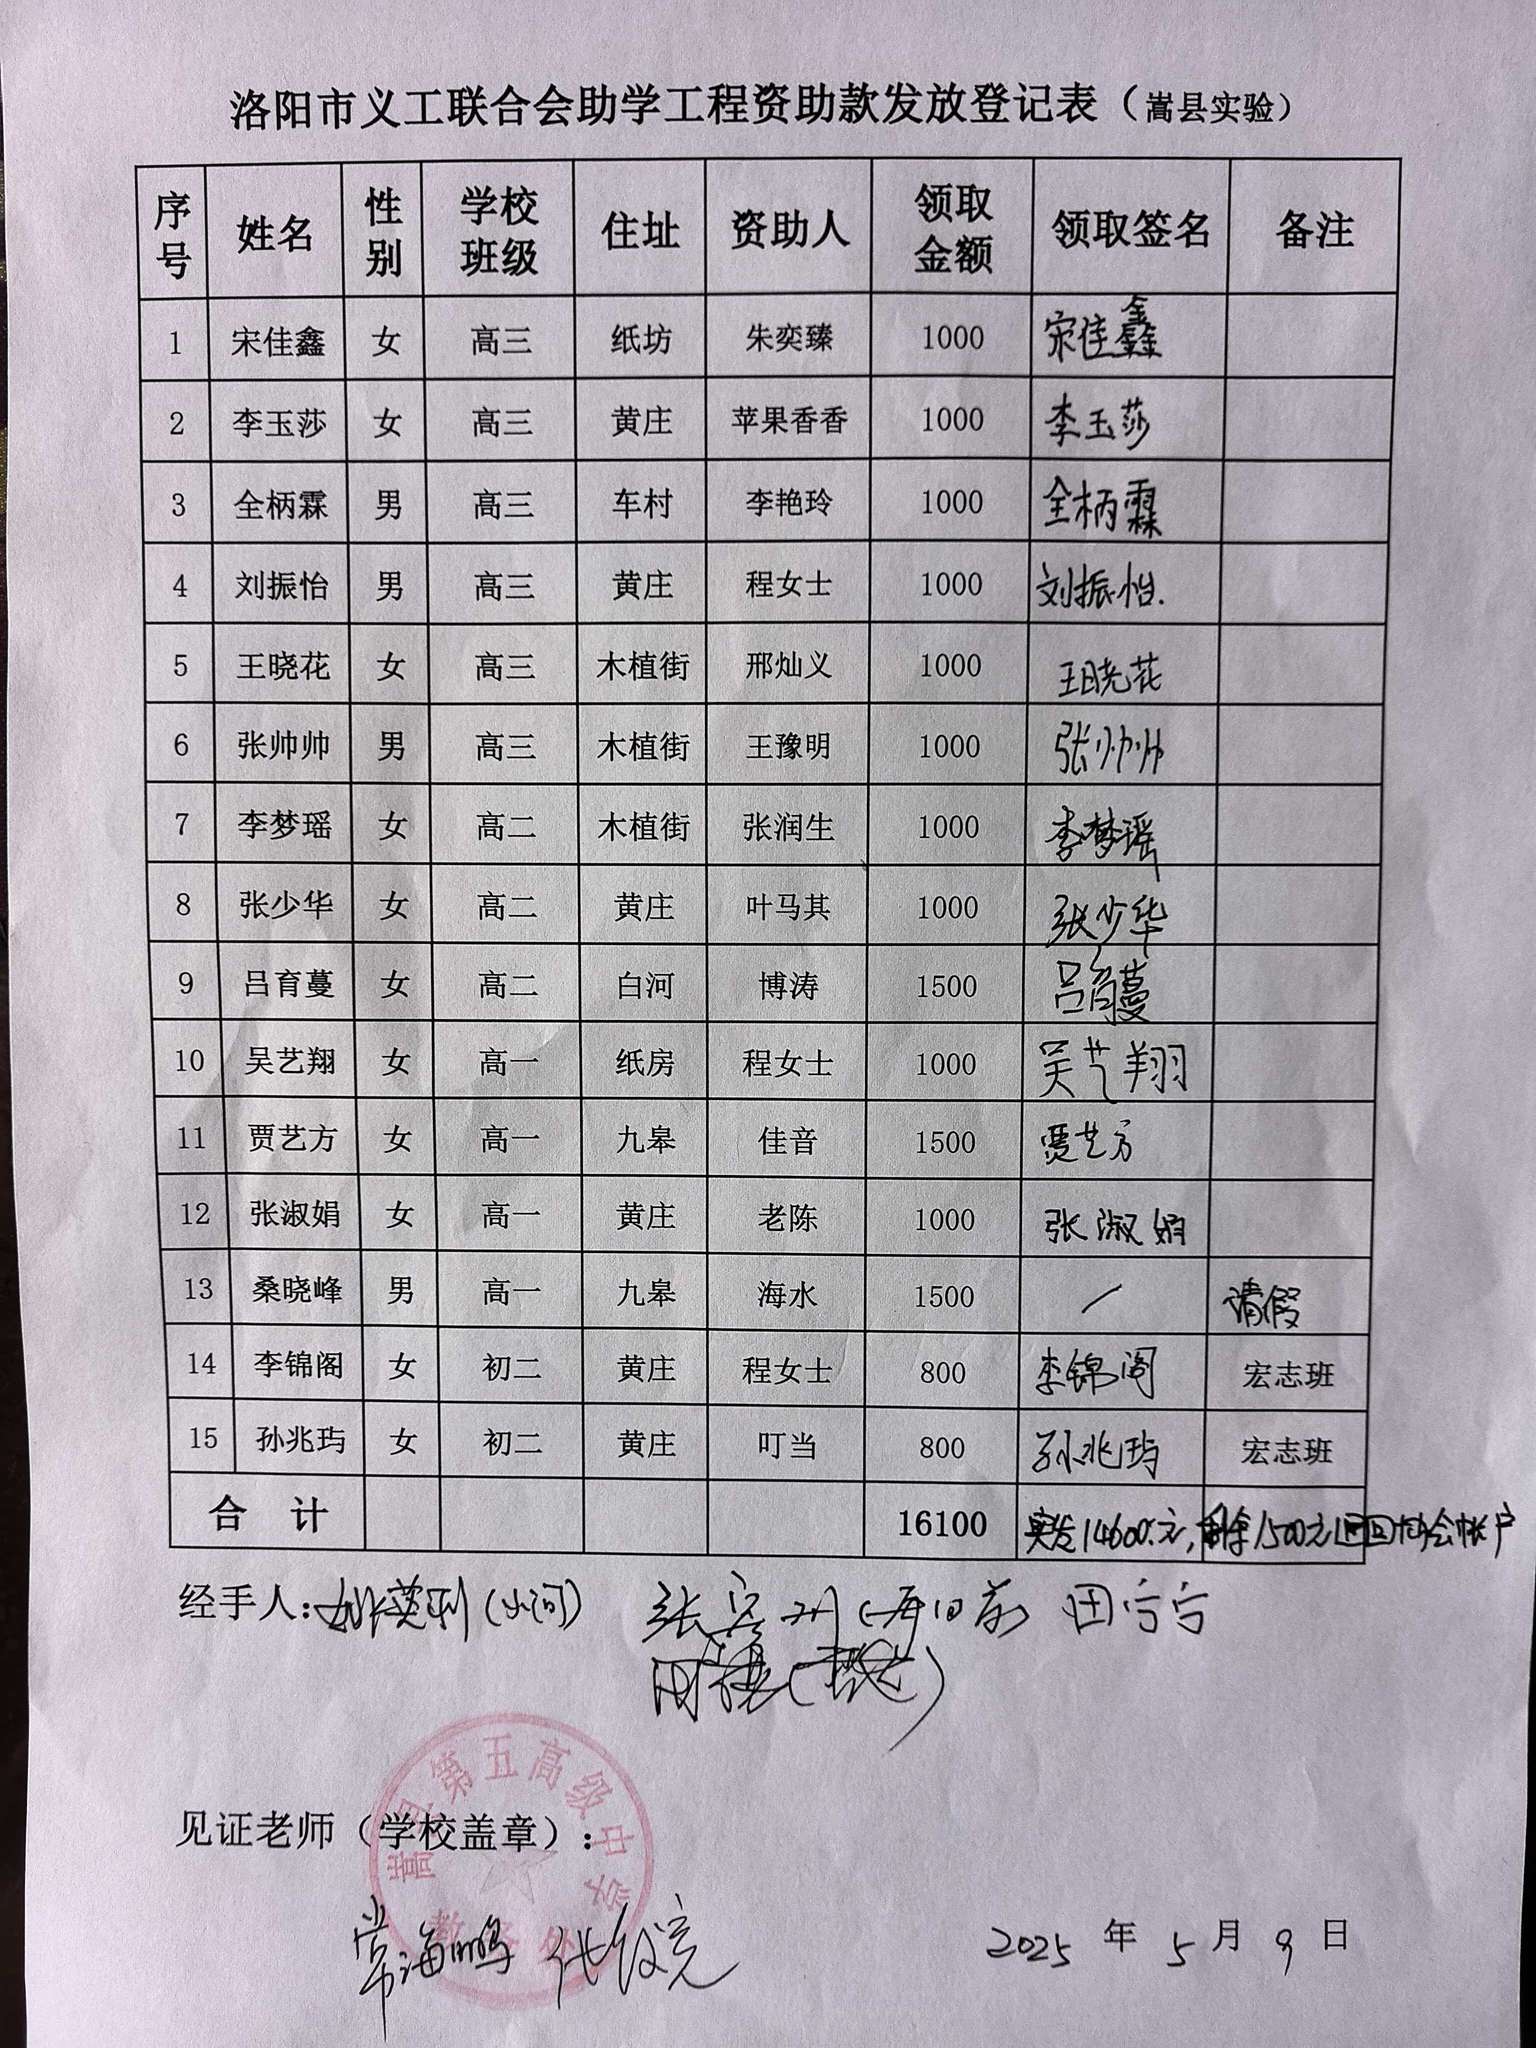 洛阳市义工联合会助学工程资助款发放登记表（嵩县实验）
序号 姓名 性别 学校班级 住址 资助人 领取金额 领取签名 备注
1 宋佳鑫 女 高三 纸坊 朱奕臻 1000 宋佳鑫
2 李玉莎 女 高三 黄庄 苹果香香 1000 李玉莎
3 全柄霖 男 高三 车村 李艳玲 1000 全柄霖
4 刘振怡 男 高三 黄庄 程女士 1000 刘振怡.
5 王晓花 女 高三 木植街 邢灿义 1000 王晓花
6 张帅帅 男 高三 木植街 王豫明 1000 张帅帅
7 李梦瑶 女 高二 木植街 张润生 1000 李梦瑶
8 张少华 女 高二 黄庄 叶马其 1000 张少华
9 吕育蔓 女 高二 白河 博涛 1500 吕育蔓
10 吴艺翔 女 高一 纸房 程女士 1000 吴艺翔
11 贾艺方 女 高一 九皋 佳音 1500 贾艺方
12 张淑娟 女 高一 黄庄 老陈 1000 张淑娟
13 桑晓峰 男 高一 九皋 海水 1500 / 请假
14 李锦阁 女 初二 黄庄 程女士 800 李锦阁 宏志班
15 孙兆玙 女 初二 黄庄 叮当 800 孙兆玙 宏志班
合计 16100 实发14600元,剩余1500元退回协会帐户
经手人: 田宁宁
嵩县第五高级中学
见证老师（学校盖章）:
教务处
常海鹏
2025 年 5 月 9 日